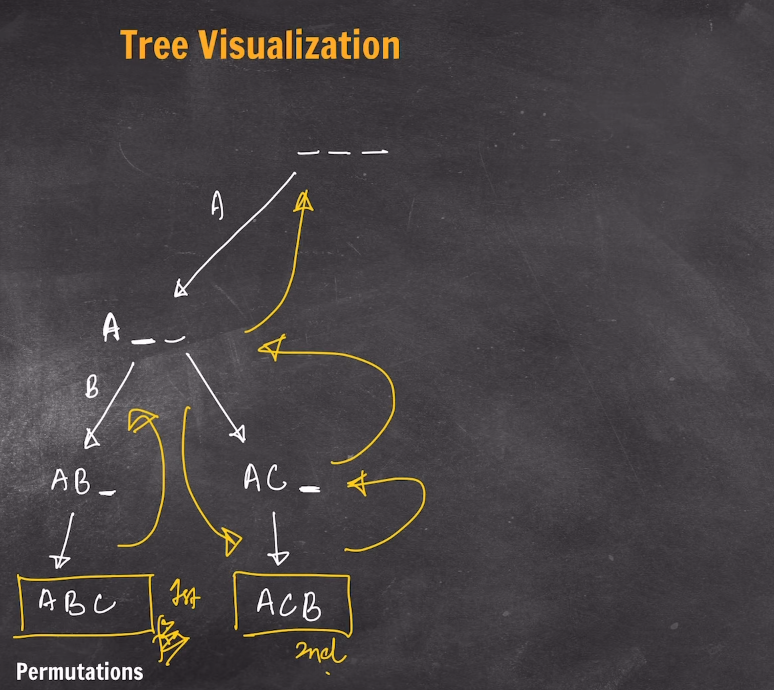 Tree Visualization
_ _ _
A
A _ _
B
AB _
AC _
ABC
1st
ACB
2nd
Permutations